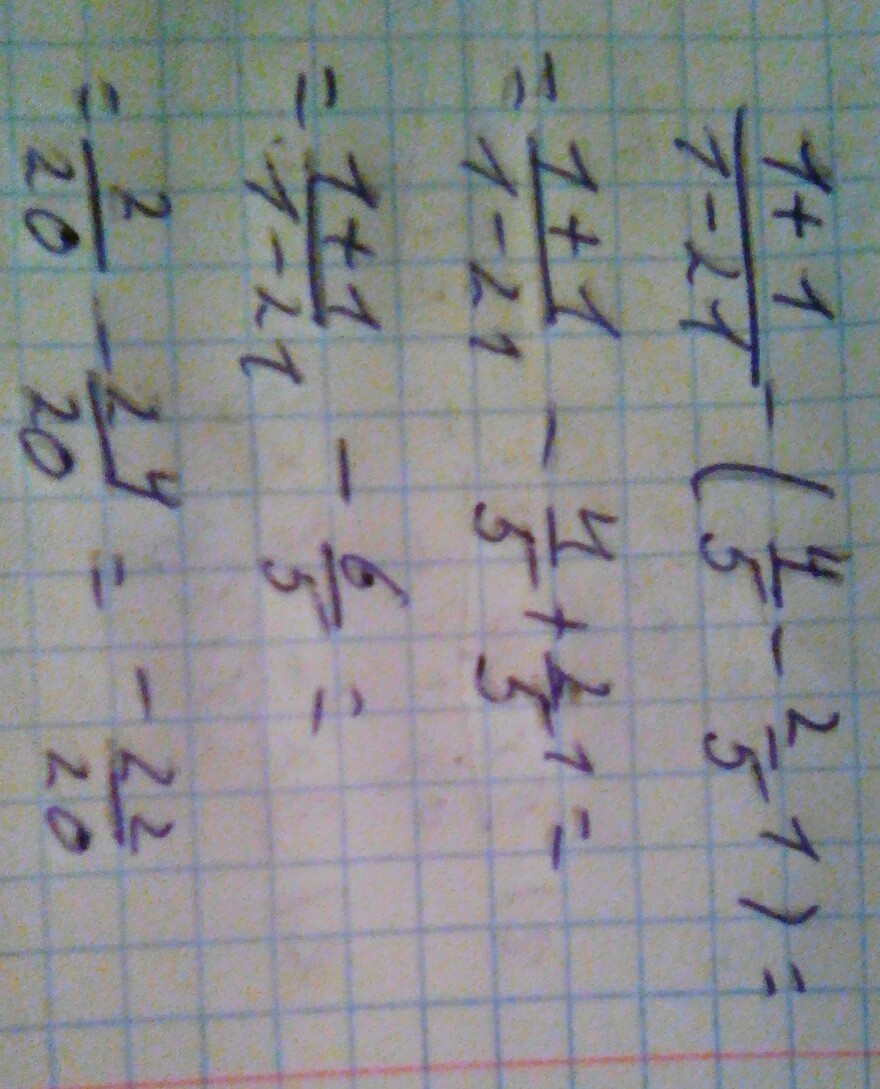 \frac{1+1}{1-21} - (\frac{4}{5} - \frac{2}{5} 1) =
= \frac{1+1}{1-21} - \frac{4}{5} + \frac{2}{5} 1 =
= \frac{1+1}{1-21} - \frac{6}{5} =
= \frac{2}{20} - \frac{24}{20} = - \frac{22}{20}